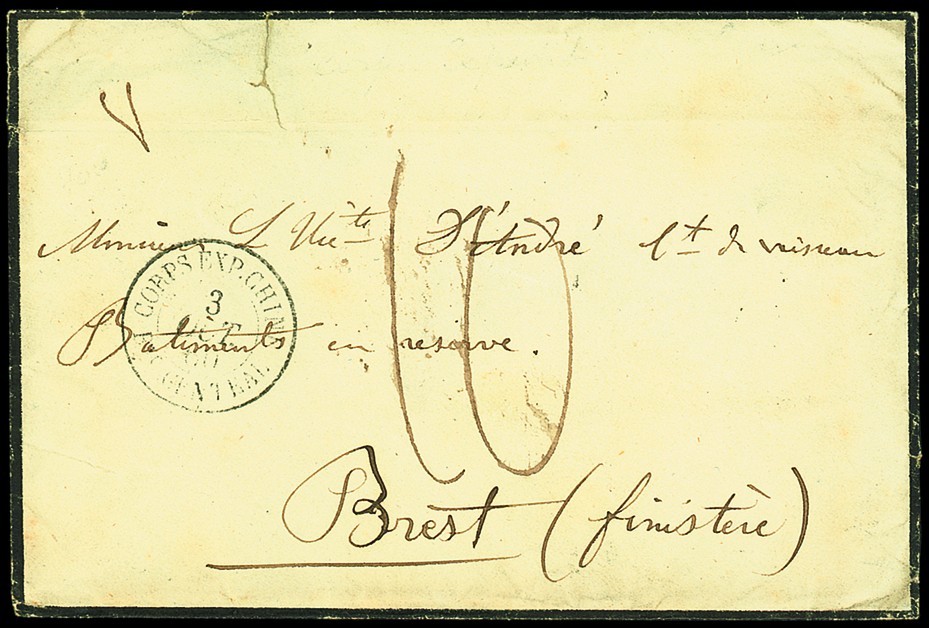 V
Monsieur L Victe D'André Lt de vaisseau
CORPS EXP. CHINE
3
Bâtiments en reserve.
CENTRAL
10
Brest (finistère)